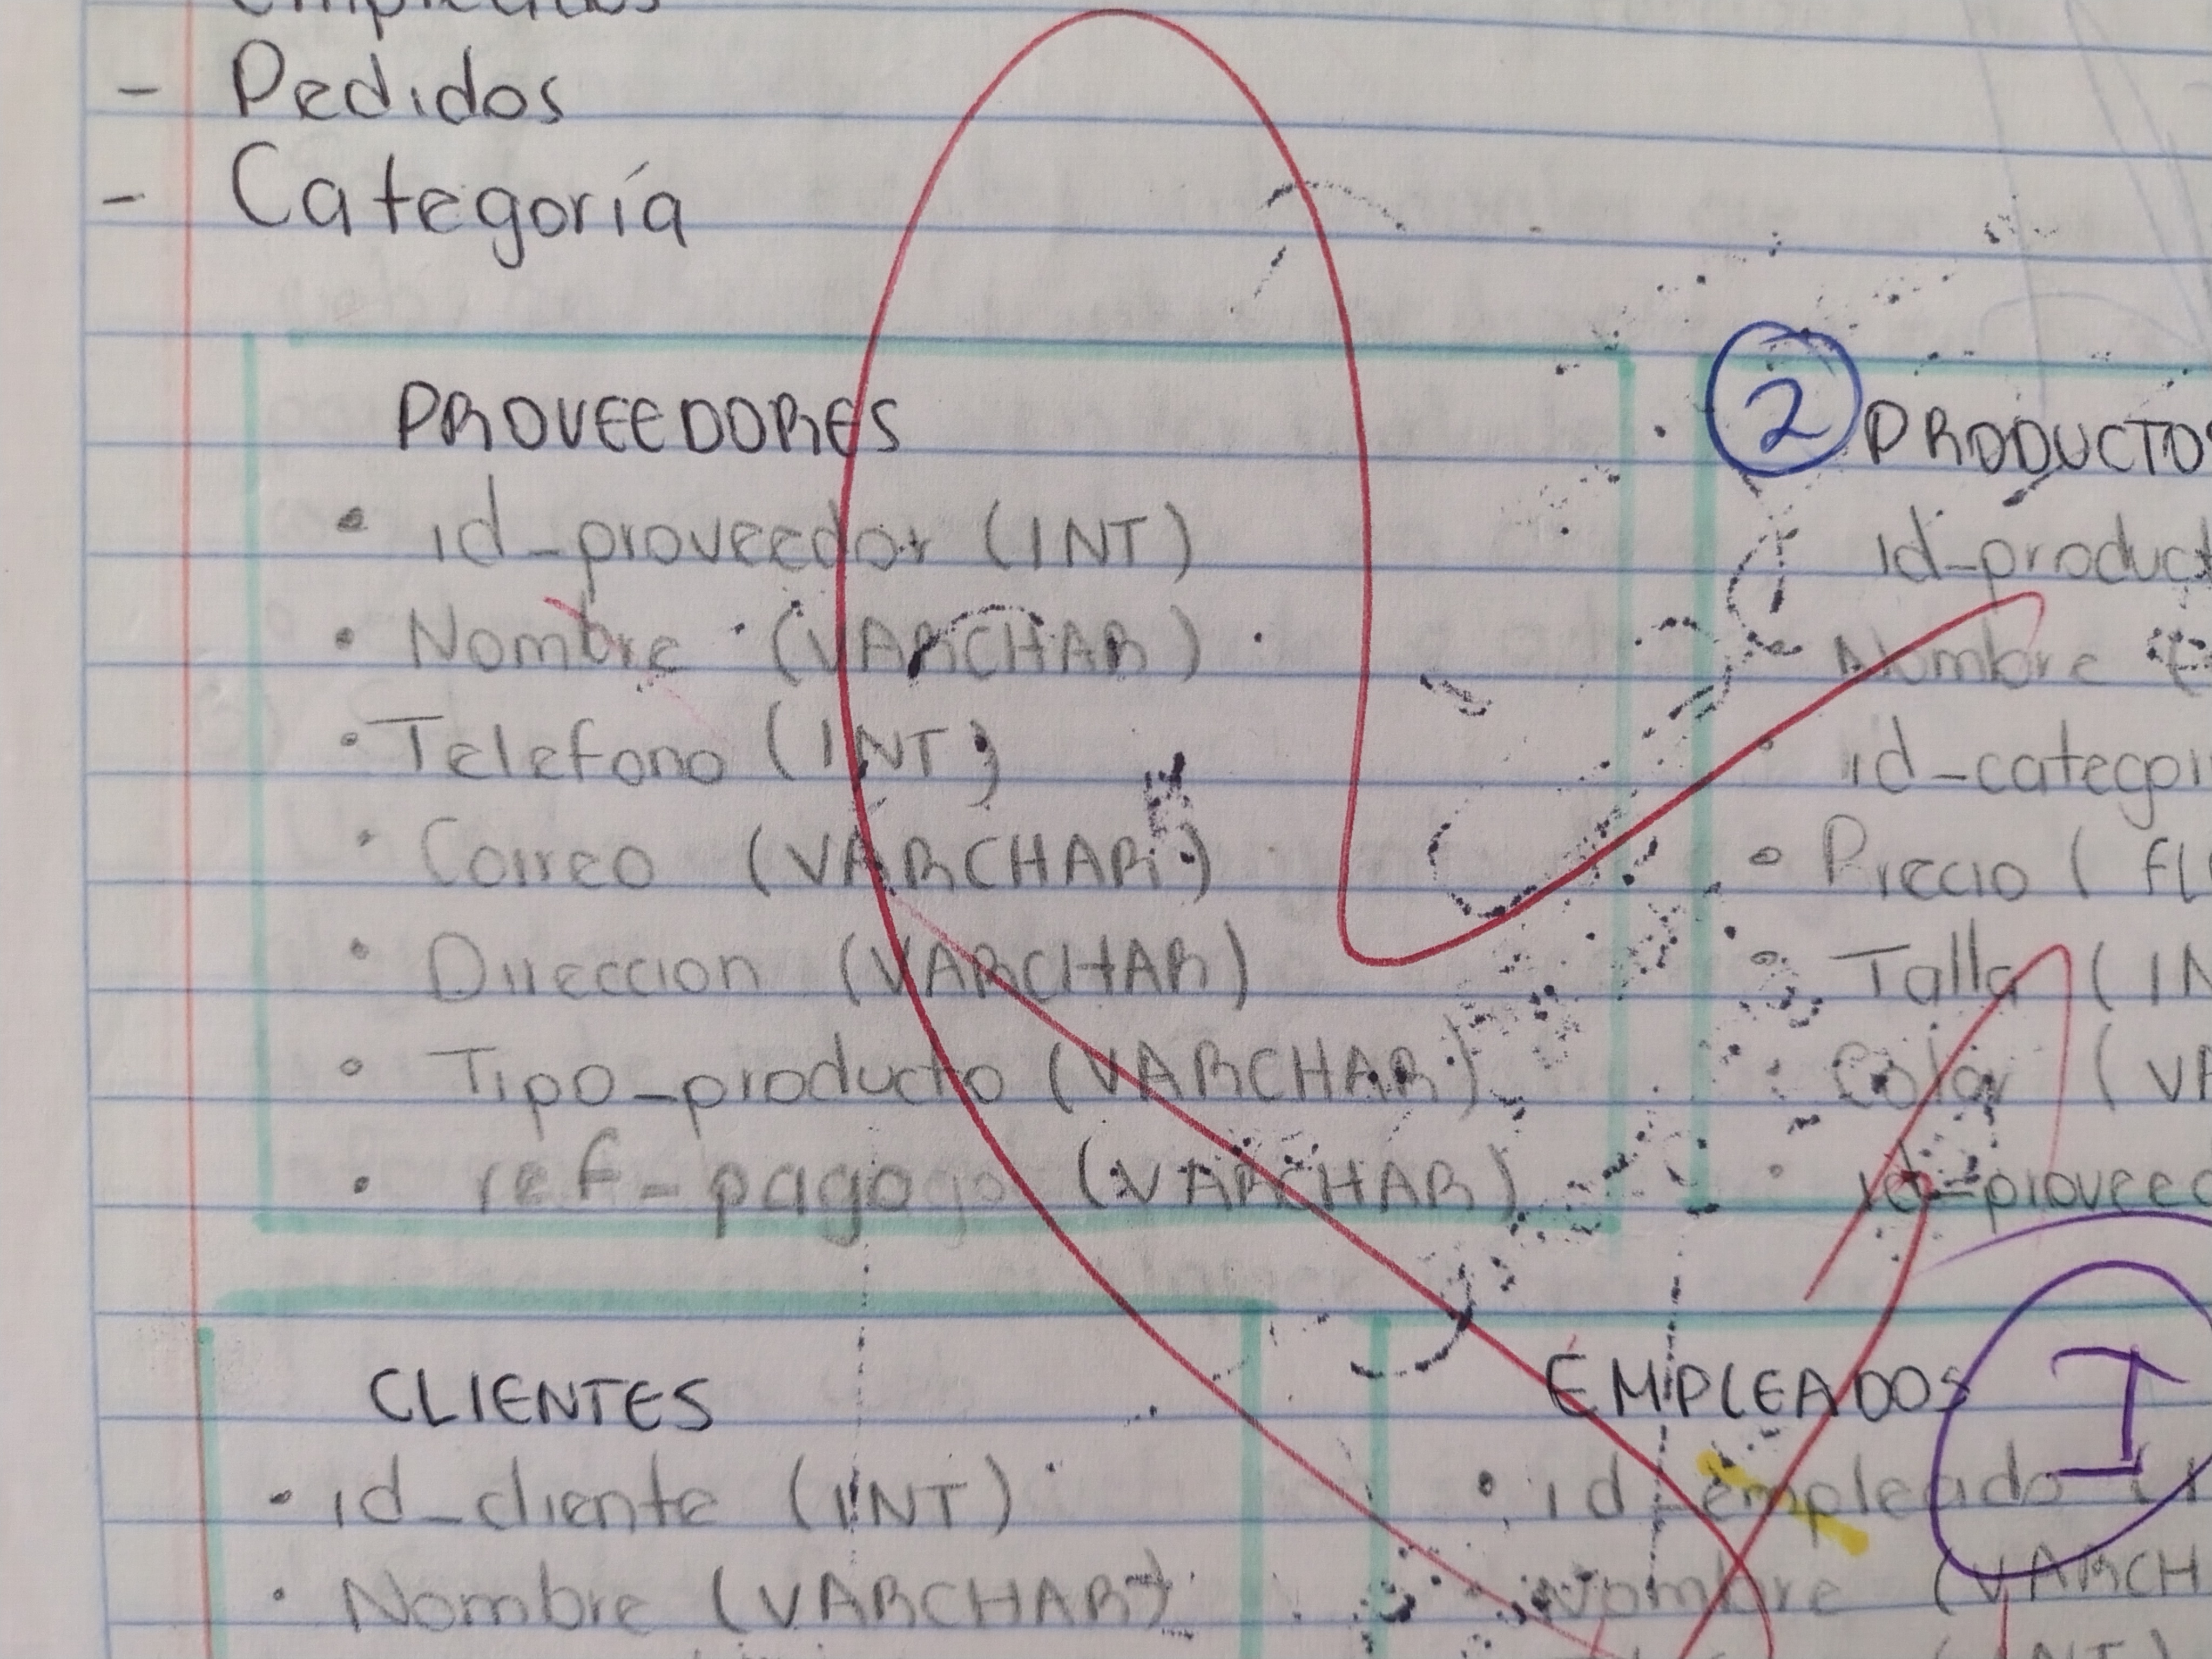 - Pedidos
- Categoría
PROVEEDORES
• id_proveedor (INT)
• Nombre (VARCHAR)
• Telefono (INT)
• Correo (VARCHAR)
• Direccion (VARCHAR)
• Tipo_producto (VARCHAR)
• ref_pago (VARCHAR)
② PRODUCTOS
id_product
• Nombre (
• id_categori
• Precio (FL
• Talla (IN
• Color (VA
• id_proveed
CLIENTES
• id_cliente (INT)
• Nombre (VARCHAR)
EMPLEADOS
• id_empleado
• Nombre (VARCH